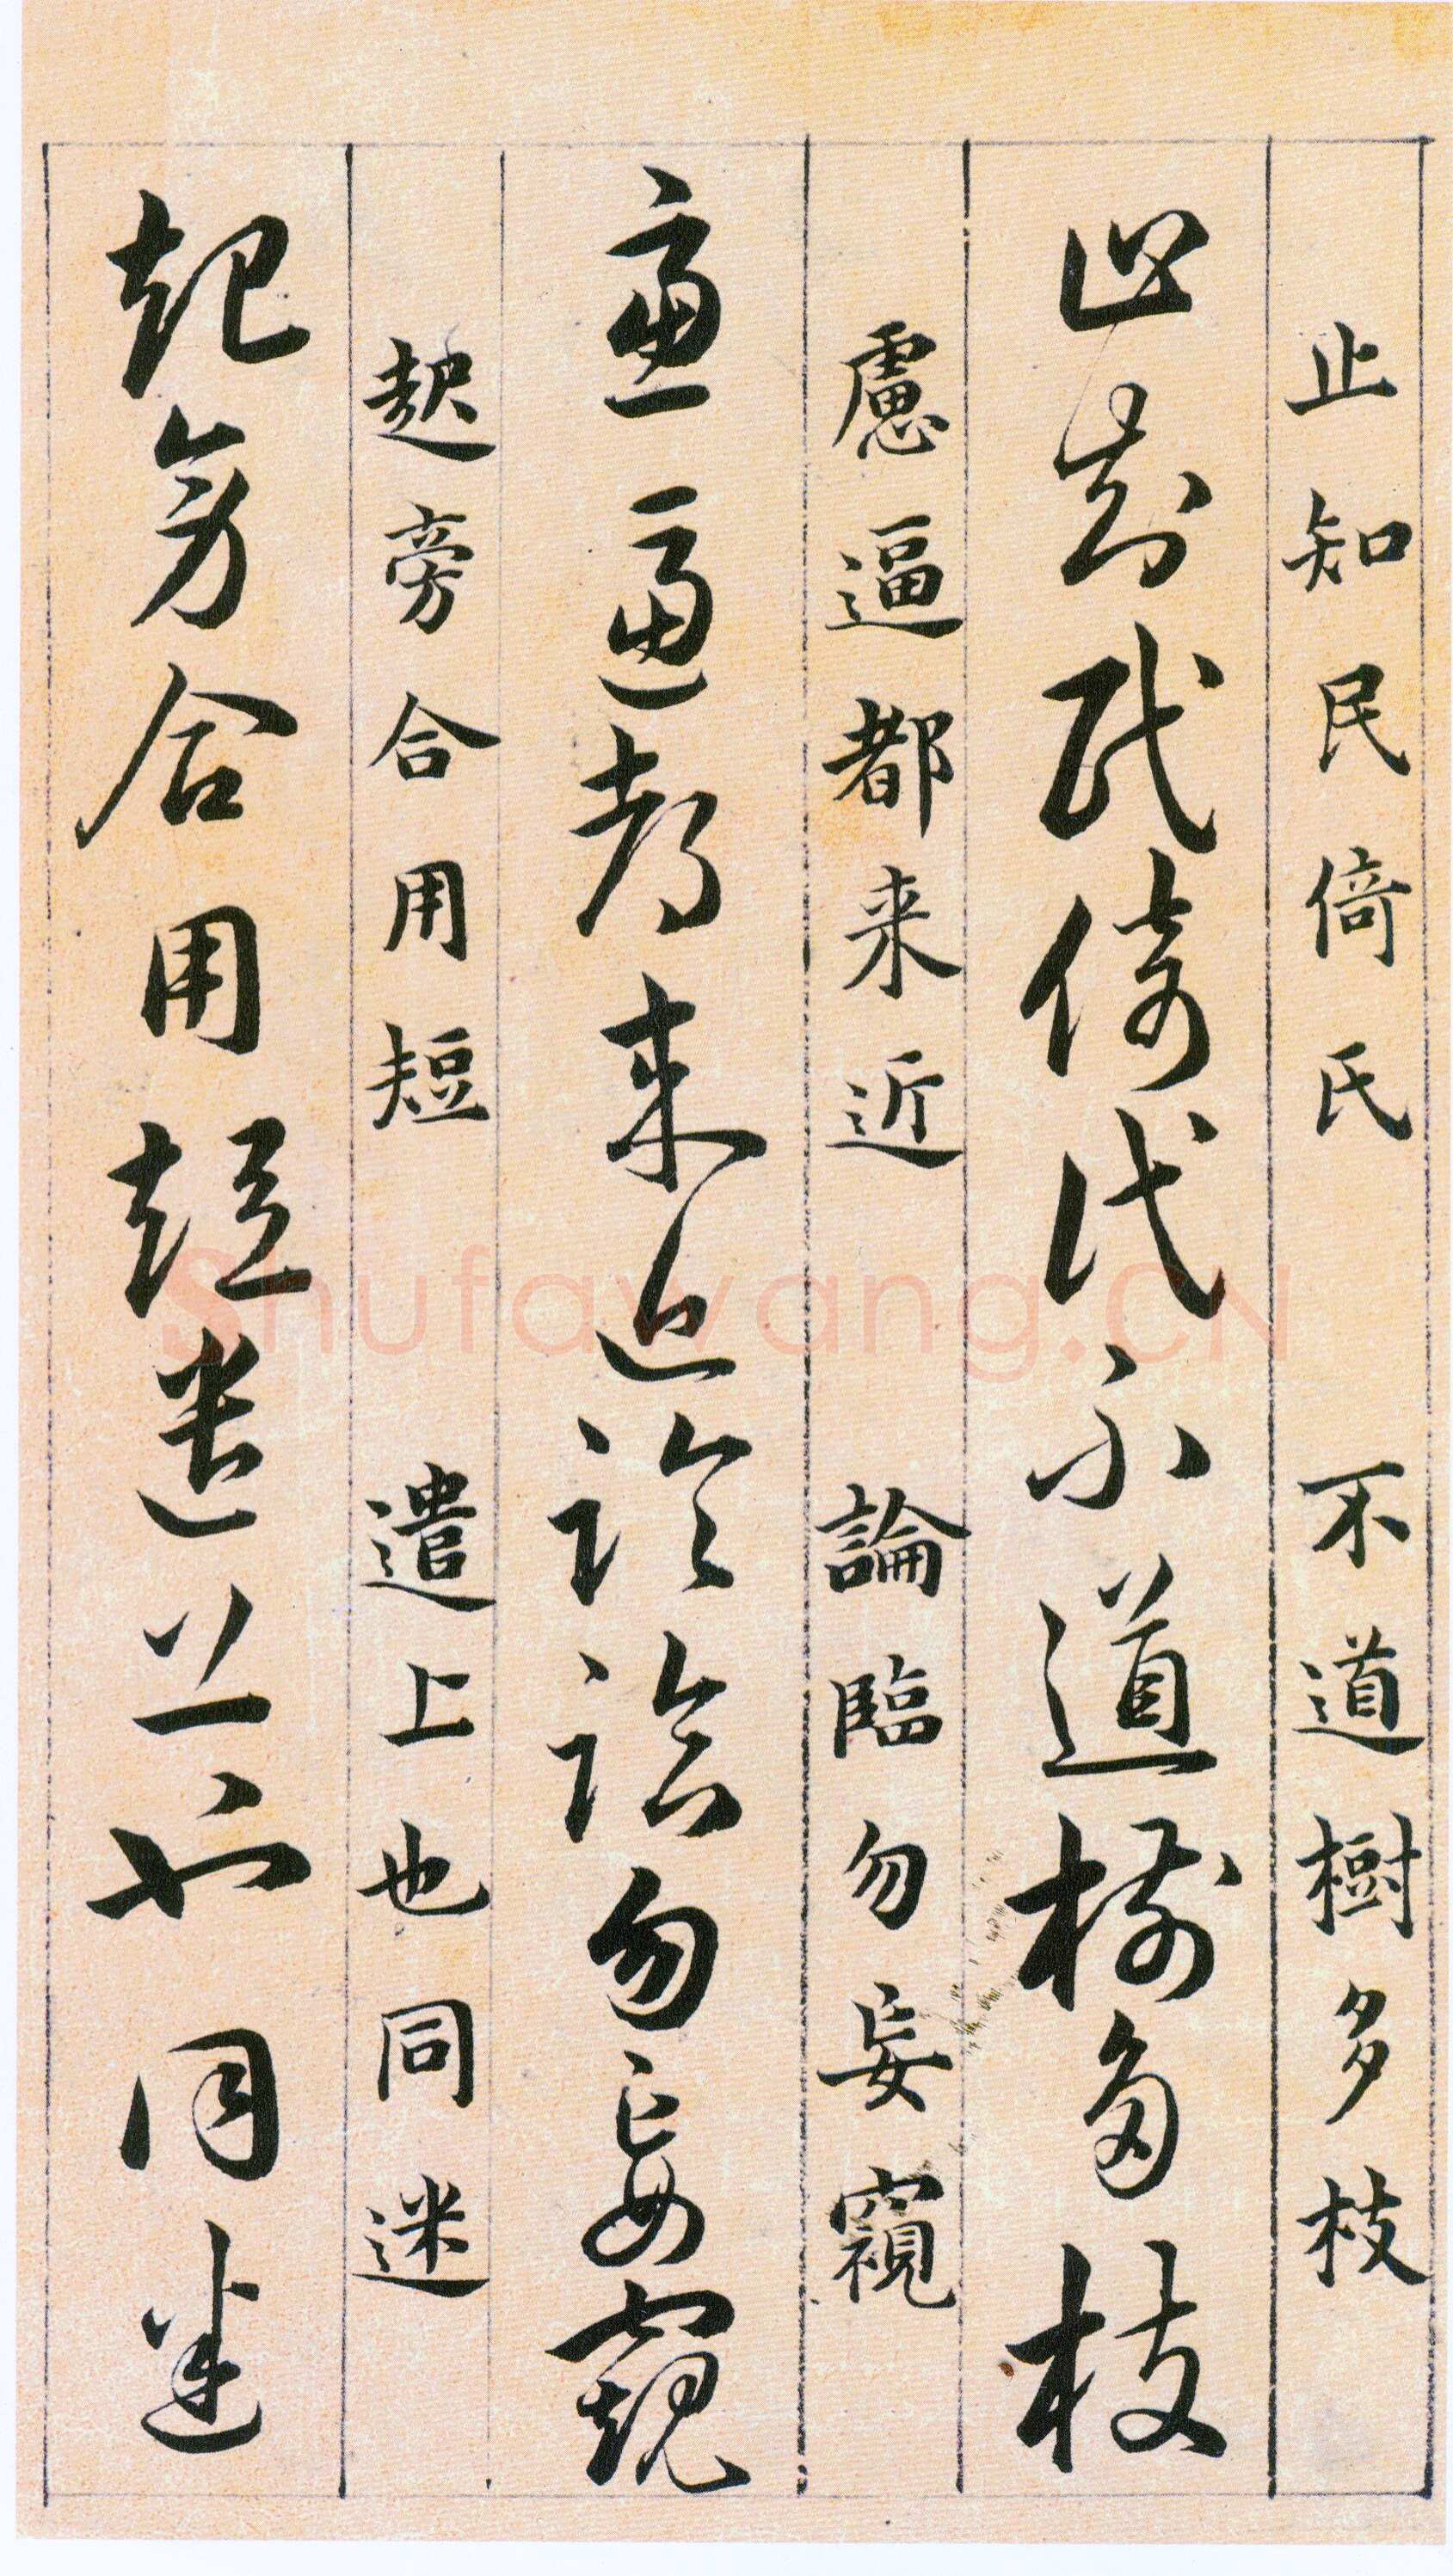 止知民倚氏　不道樹多枝
止知民倚氏不道樹多枝
慮逼都来近　論臨勿妄窺
慮逼都来近論臨勿妄窺
起旁合用短　遣上也同迷
起旁合用短遣上也同迷
Shufawang.CN